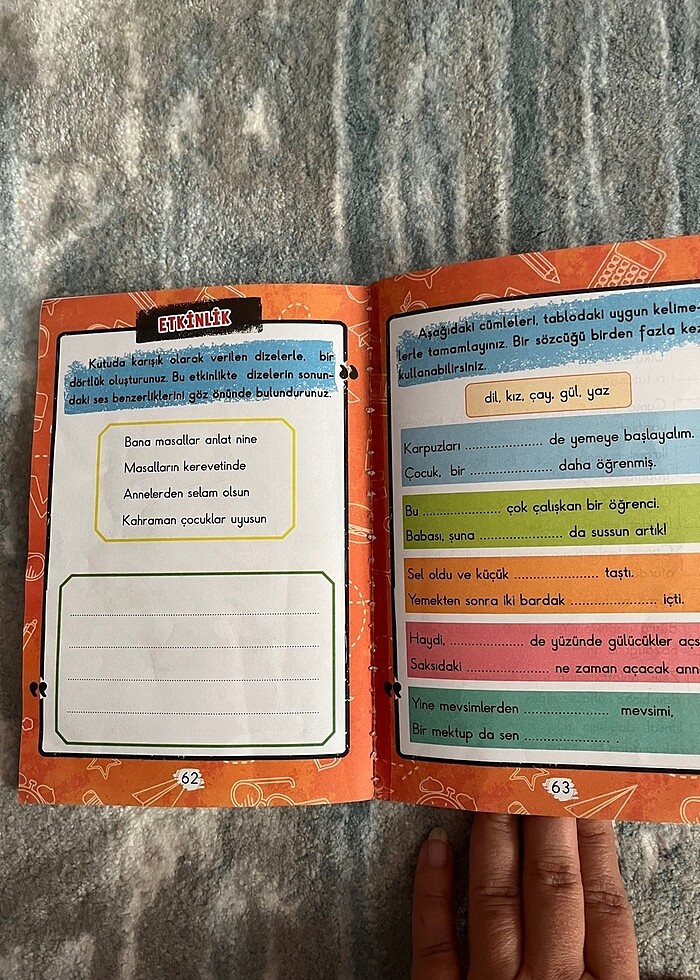 ETKİNLİK
Kutuda karışık olarak verilen dizelerle, bir
dörtlük oluşturunuz. Bu etkinlikte dizelerin sonun-
daki ses benzerliklerini göz önünde bulundurunuz.
Bana masallar anlat nine
Masalların kerevetinde
Annelerden selam olsun
Kahraman çocuklar uyusun
62
Aşağıdaki cümleleri, tablodaki uygun kelime-
lerle tamamlayınız. Bir sözcüğü birden fazla kez
kullanabilirsiniz.
dil, kız, çay, gül, yaz
Karpuzları .................... de yemeye başlayalım.
Çocuk, bir .................... daha öğrenmiş.
Bu .................... çok çalışkan bir öğrenci.
Babası, şuna .................... da sussun artık!
Sel oldu ve küçük .................... taştı.
Yemekten sonra iki bardak .................... içti.
Haydi, .................... de yüzünde gülücükler açs
Saksıdaki .................... ne zaman açacak ann
Yine mevsimlerden .................... mevsimi,
Bir mektup da sen .................... .
63